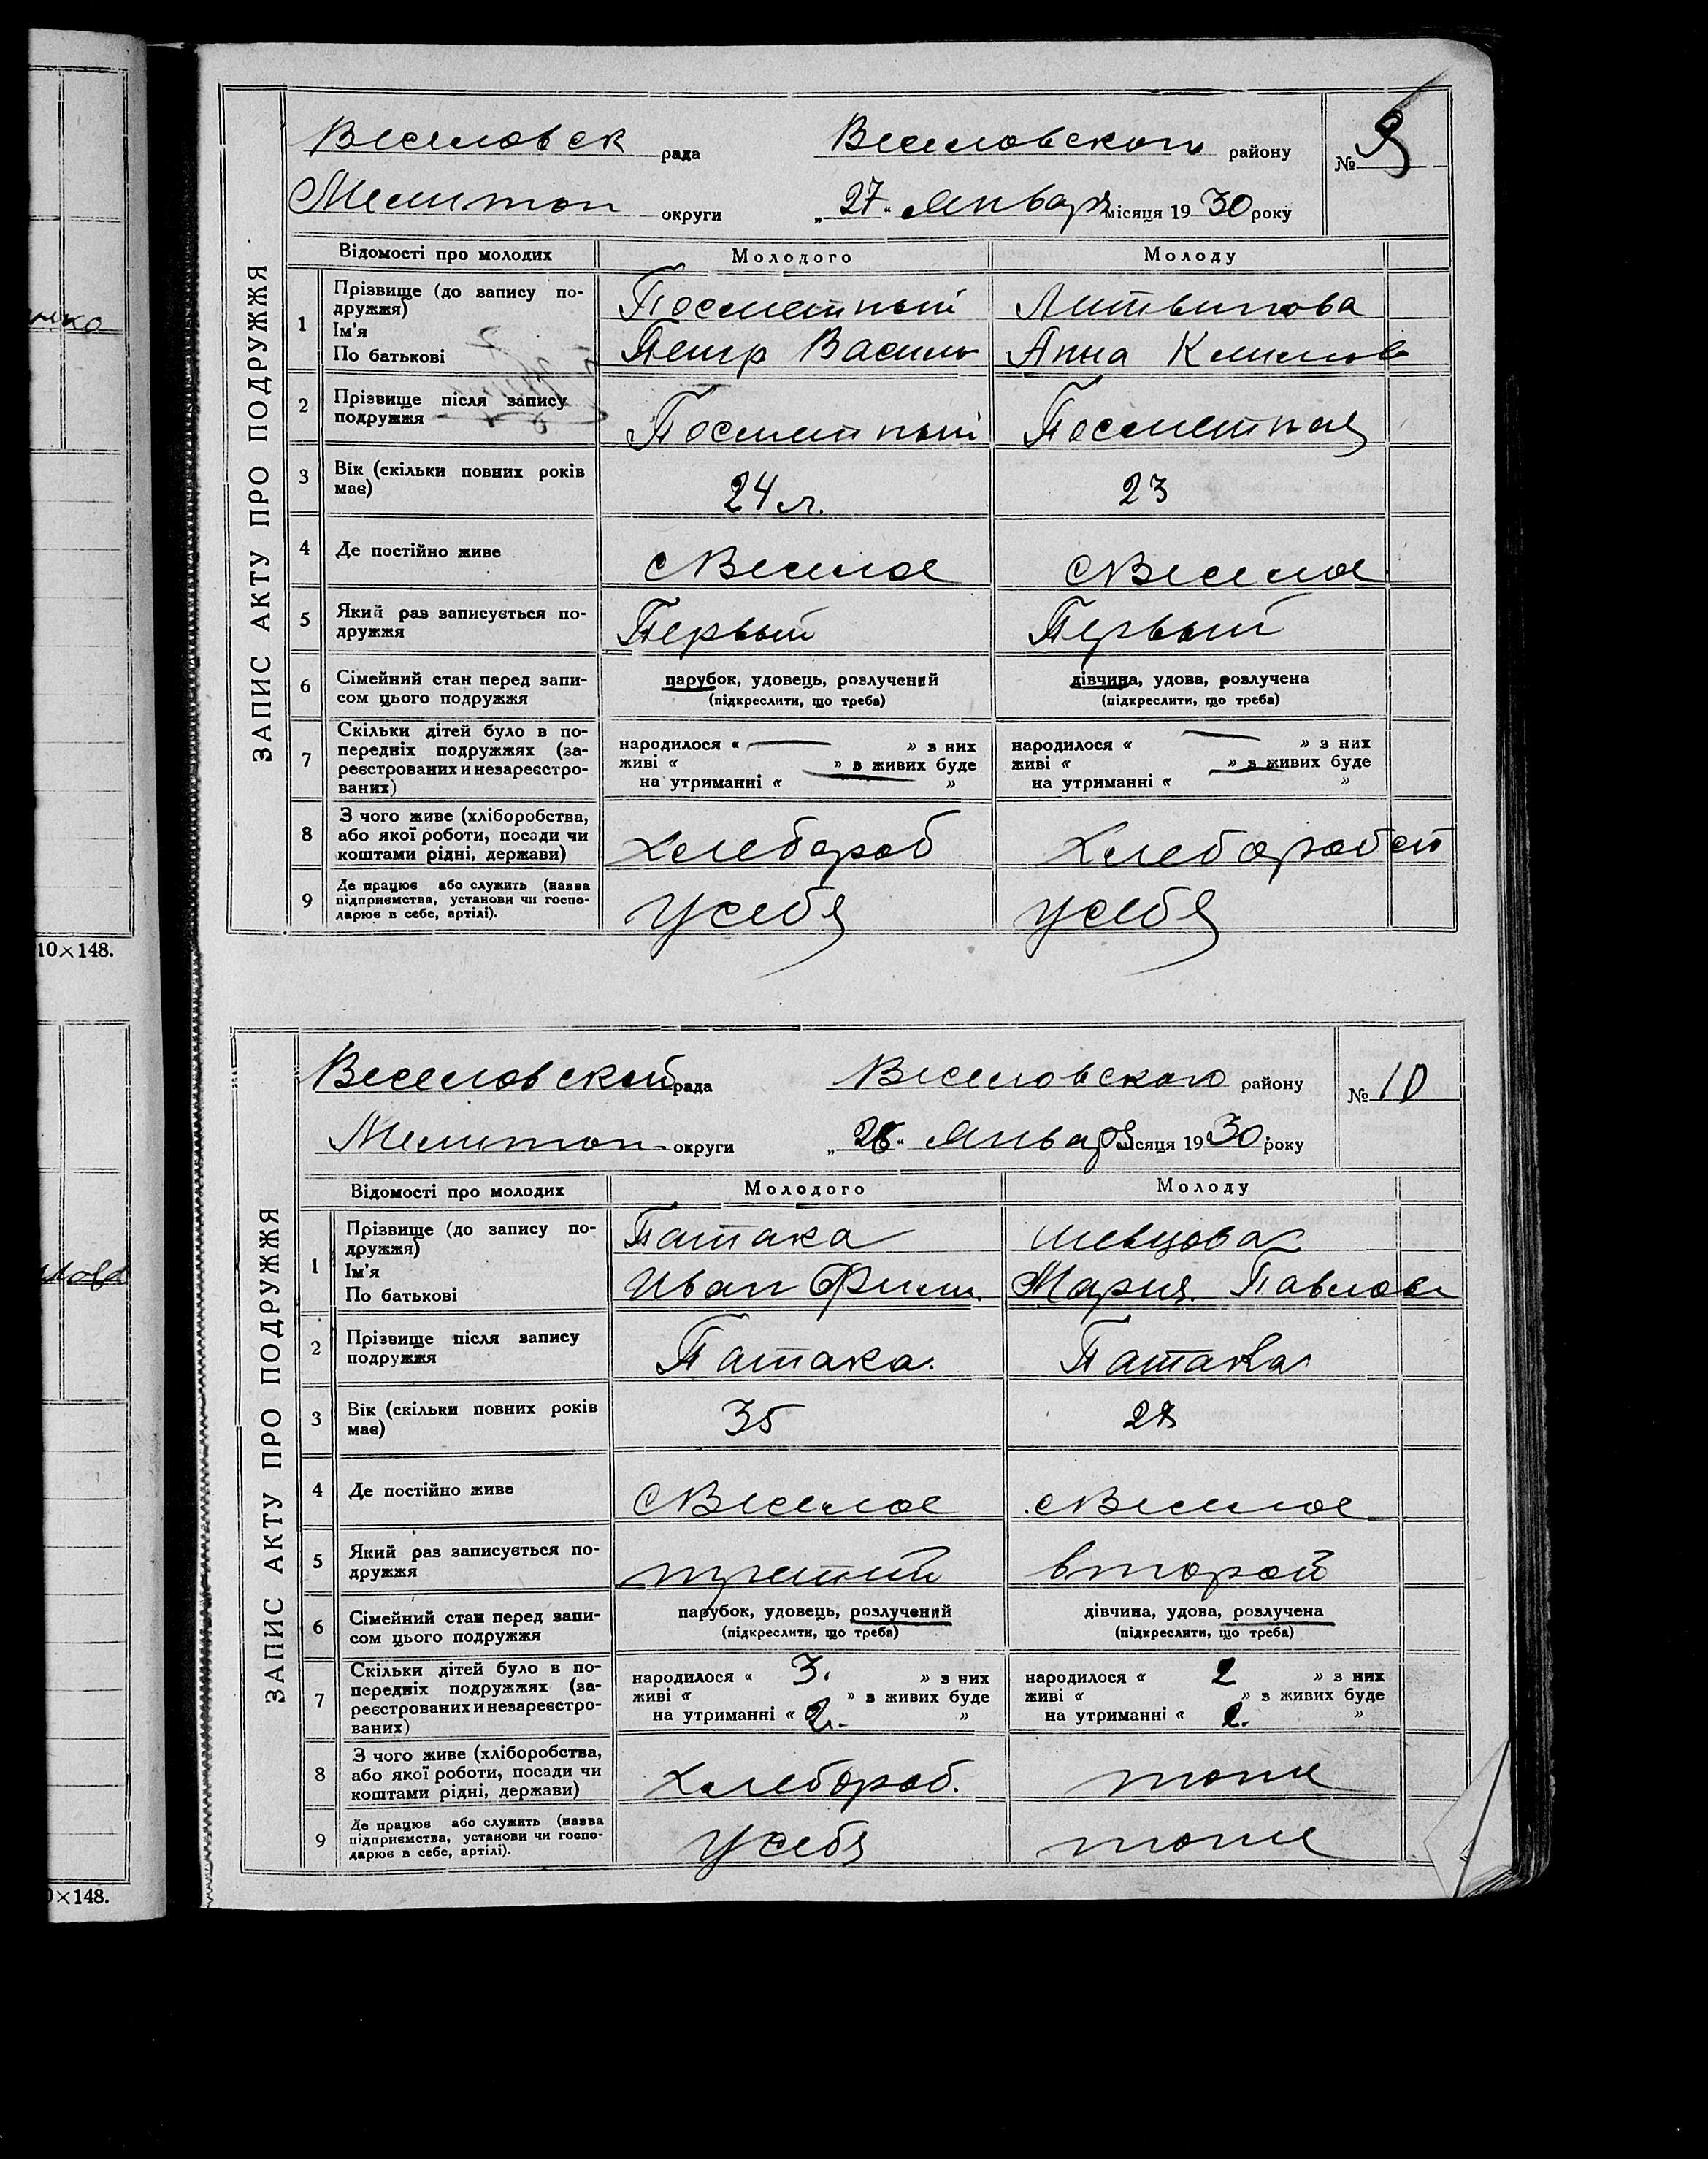 нко
10×148.
лова
0×148.
ЗАПИС АКТУ ПРО ПОДРУЖЖЯ
Веселовск рада Веселовского району № 9
Мелитоп округи „27“ Января місяця 1930 року
Відомості про молодих Молодого Молоду
1 Прізвище (до запису по-
дружжя) Посметный Литвинова
Ім’я
По батькові Петр Василь Анна Климов
2 Прізвище після запису
подружжя Посметный Посметная
3 Вік (скільки повних років
має) 24 л. 23
4 Де постійно живе с Веселое с Веселое
5 Який раз записується по-
дружжя Первый Первый
6 Сімейний стан перед запи-
сом цього подружжя
парубок, удовець, розлучений дівчина, удова, розлучена
(підкреслити, що треба) (підкреслити, що треба)
7 Скільки дітей було в по-
передніх подружжях (за-
реєстрованих и незареєстро-
ваних)
народилося « — » з них народилося « — » з них
живі « » в живих буде живі « » з живих буде
на утриманні « — » на утриманні « — »
8 З чого живе (хліборобства,
або якої роботи, посади чи
коштами рідні, держави) Хлебороб Хлебороб
9 Де працює або служить (назва
підприємства, установи чи госпо-
дарює в себе, артілі). у себя у себя
ЗАПИС АКТУ ПРО ПОДРУЖЖЯ
Веселовской рада Веселовского району № 10
Мелитоп округи „28“ Января місяця 1930. року
Відомості про молодих Молодого Молоду
1 Прізвище (до запису по-
дружжя) Патака Шевцова
Ім’я
По батькові Иван Фили. Мария. Павлов
2 Прізвище після запису
подружжя Патака. Патака
3 Вік (скільки повних років
має) 35 28
4 Де постійно живе с Веселое с Веселое
5 Який раз записується по-
дружжя третий второй
6 Сімейний стан перед запи-
сом цього подружжя
парубок, удовець, розлучений дівчина, удова, розлучена
(підкреслити, що треба) (підкреслити, що треба)
7 Скільки дітей було в по-
передніх подружжях (за-
реєстрованих и незареєстро-
ваних)
народилося « 3. » з них народилося « 2 » з них
живі « » в живих буде живі « » з живих буде
на утриманні « 2. » на утриманні « 2. »
8 З чого живе (хліборобства,
або якої роботи, посади чи
коштами рідні, держави) Хлебороб. тоже
9 Де працює або служить (назва
підприємства, установи чи госпо-
дарює в себе, артілі). у себя тоже